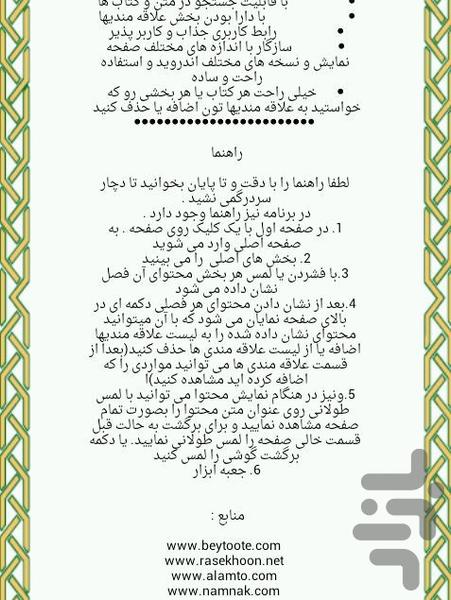 با قابلیت جستجو در متن و کتاب ها
• با دارا بودن بخش علاقه مندیها
• رابط کاربری جذاب و کاربر پذیر
• سازگار با اندازه های مختلف صفحه
نمایش و نسخه های مختلف اندروید و استفاده
راحت و ساده
• خیلی راحت هر کتاب یا هر بخشی رو که
خواستید به علاقه مندیها تون اضافه یا حذف کنید
••••••••••••••••••••••••
راهنما
لطفا راهنما را با دقت و تا پایان بخوانید تا دچار
سردرگمی نشید .
در برنامه نیز راهنما وجود دارد .
1. در صفحه اول با یک کلیک روی صفحه . به
صفحه اصلی وارد می شوید
2. بخش های اصلی را می بینید
3.با فشردن یا لمس هر بخش محتوای آن فصل
نشان داده می شود
4.بعد از نشان دادن محتوای هر فصلی دکمه ای در
بالای صفحه نمایان می شود که با آن میتوانید
محتوای نشان داده شده را به لیست علاقه مندیها
اضافه یا از لیست علاقه مندی ها حذف کنید(بعدا از
قسمت علاقه مندی ها می توانید مواردی را که
اضافه کرده اید مشاهده کنید)ا
5.ونیز در هنگام نمایش محتوا می توانید با لمس
طولانی روی عنوان متن محتوا را بصورت تمام
صفحه مشاهده نمایید و برای برگشت به حالت قبل
قسمت خالی صفحه را لمس طولانی نمایید. یا دکمه
برگشت گوشی را لمس کنید
6. جعبه ابزار
منابع :
www.beytoote.com
www.rasekhoon.net
www.alamto.com
www.namnak.com